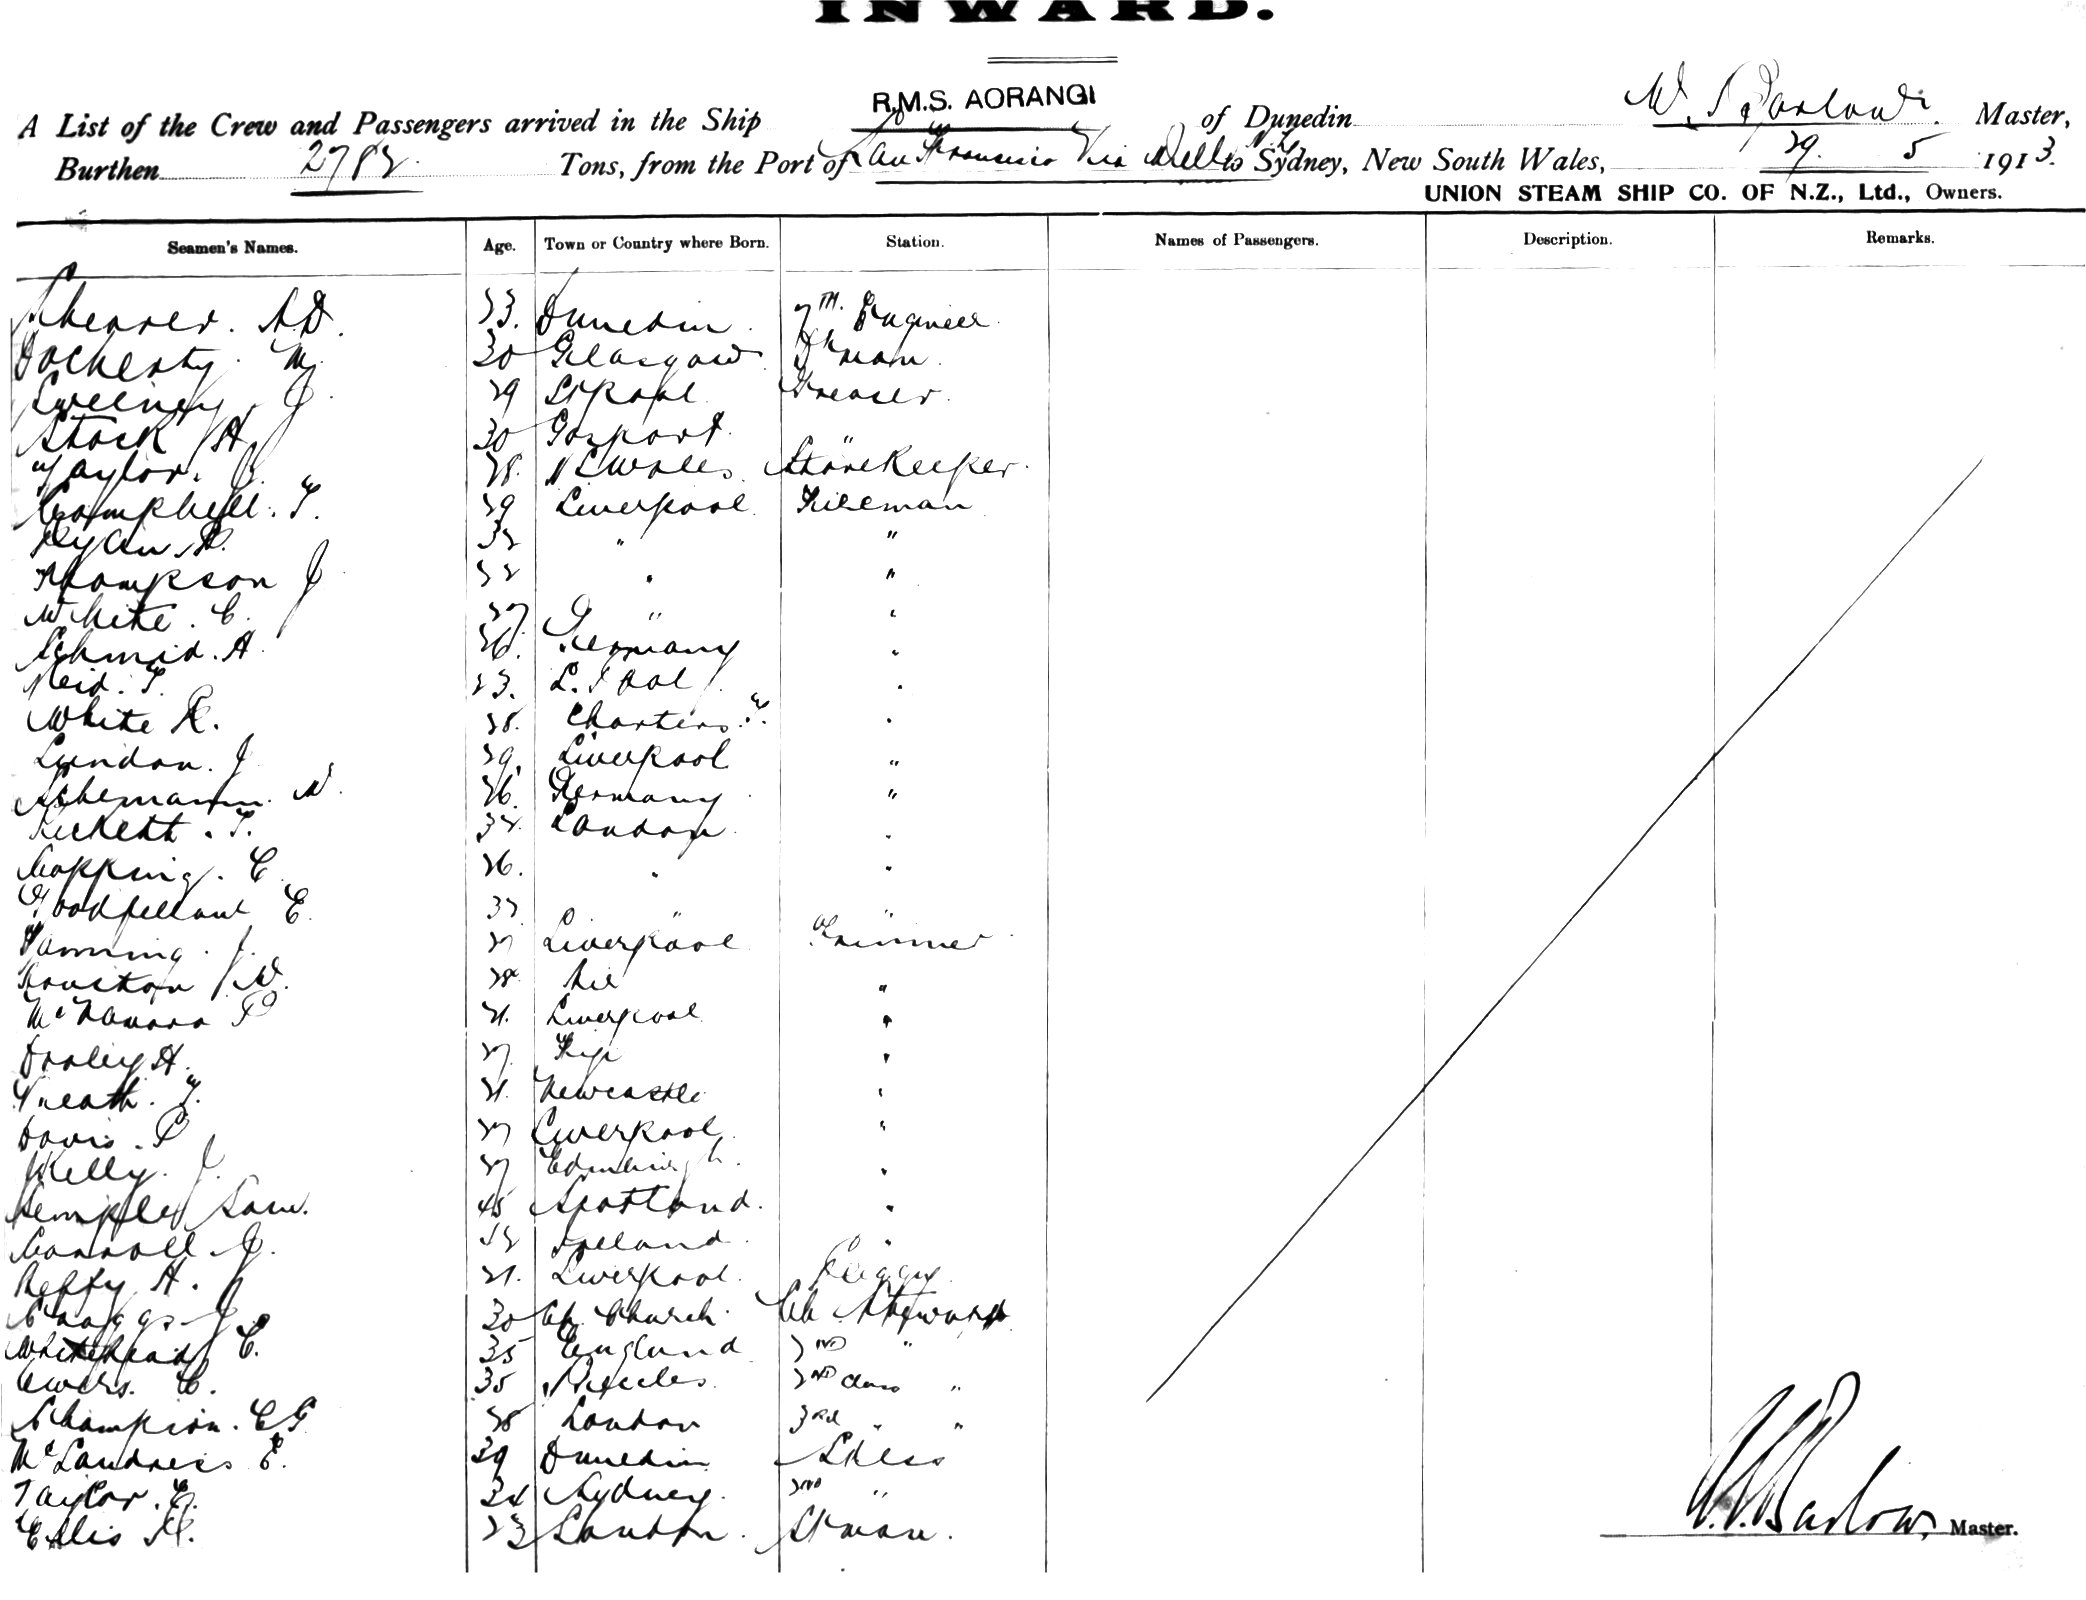 INWARD.
A List of the Crew and Passengers arrived in the Ship R.M.S. AORANGI of Dunedin W. J. Barlow. Master,
Burthen 2782 Tons, from the Port of San Francisco Via to Sydney, New South Wales, 29. 5 1913.
UNION STEAM SHIP CO. OF N.Z., Ltd., Owners.
Seamen's Names. Age. Town or Country where Born. Station. Names of Passengers. Description. Remarks.
Shearer. A.D. 23. Dunedin. 7TH. Engineer.
Docherty. M. 30 Glasgow
Sweeney. J. 29 L'pool. Greaser.
Stock H 30 Gosport. "
Taylor. 28. N S Wales. Storekeeper.
Campbell. T. 29 Liverpool. Fireman
Ryan. 32 " "
Thompson J 22 " "
White. C. 27 " "
Schmid. A. 26. Germany "
Reid. T. 23. L. Pool. "
White R. 28. Charters. T. "
Lundon. J 29. Liverpool "
W. 26. Germany "
Ricketh. T. 32. London "
Copping. C. 26. " "
Goodfellow E. 32 " "
Fanning. J. 27 Liverpool Trimmer
Houston W. 28. "
McNamara P 21. Liverpool. "
Dooley H. 27. Fiji "
T. 21. Newcastle "
Davis. P 27 Liverpool. "
Kelly. J. 27 Edinburgh. "
Semple Sam. 45 Scotland. "
Carroll. J. Ireland. "
H. 21. Liverpool. Peggy.
Scraggs J. 30 Ch. Church. Ch. Steward
Whitehead C. 35 England 2ND "
Ewers. C. 35 2ND Class "
Champion. C G 28 London 3RD " "
McLandress E. 39 Dunedin S'dess
Taylor. E. 34 Sydney. 2ND "
Ellis H. 23 London. S'man.
W. J. Barlow, Master.